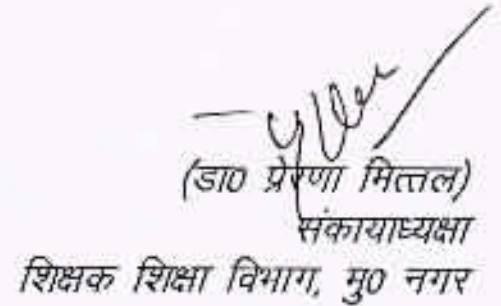 (डा0 प्रेरणा मित्तल)
संकायाध्यक्षा
शिक्षक शिक्षा विभाग, मु0 नगर